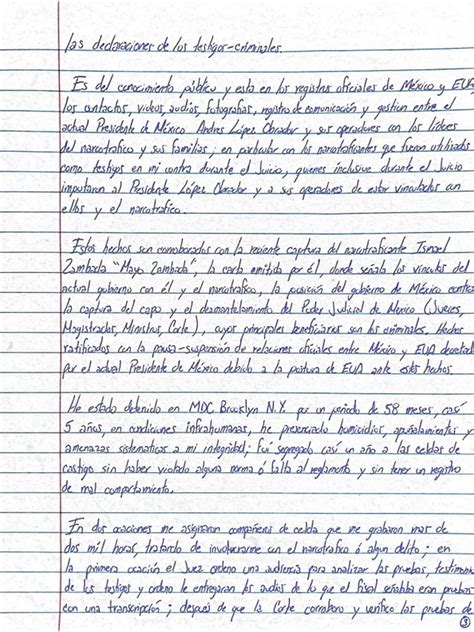 las declaraciones de los testigos-criminales.
Es del conocimiento público y esta en los registros oficiales de México y EUA
los contactos, videos, audios, fotografías, registro de comunicación y gestion entre el
actual Presidente de México Andres López Obrador y sus operadores con los líderes
del narcotrafico y sus familias; en particular con los narcotraficantes que fueron utilizados
como testigos en mi contra durante el Juicio, quienes inclusive durante el Juicio
imputaron al Presidente López Obrador y a sus operadores de estar vinculados con
ellos y el narcotrafico.
Estos hechos son corroborados con la reciente captura del narcotraficante Ismael
Zambada "Mayo Zambada", la carta emitida por él, donde señala los vinculos del
actual gobierno con él y el narcotrafico, la posición del gobierno de México contra
la captura del capo y el desmantelamiento del Poder Judicial de Mexico (Jueces,
Magistrados, Ministros, Corte), cuyos principales beneficiarios son los criminales. Hechos
ratificados con la pausa-suspensión de relaciones oficiales entre México y EUA decretada
por el actual Presidente de México debido a la postura de EUA ante estos hechos.
He estado detenido en MDC Brooklyn N.Y. por un periodo de 58 meses, casí
5 años, en condiciones infrahumanas, he presenciado homicidios, apuñalamientos y
amenazas sistematicas a mi integridad; fuí segregado casí un año a las celdas de
castigo sin haber violado alguna norma ó falta al reglamento y sin tener un registro
de mal comportamiento.
En dos ocasiones me asignaron compañeros de celda que me grabaron mas de
dos mil horas, tratando de involucrarme con el narcotrafico ó algun delito; en
la primera ocación el Juez ordeno una audiencia para analizar las pruebas, testimonios
de los testigos y ordeno le entregaran los audios de lo que el fiscal señalba eran pruebas
con una transcripción; después de que la Corte corroboro y verifico las pruebas de
3